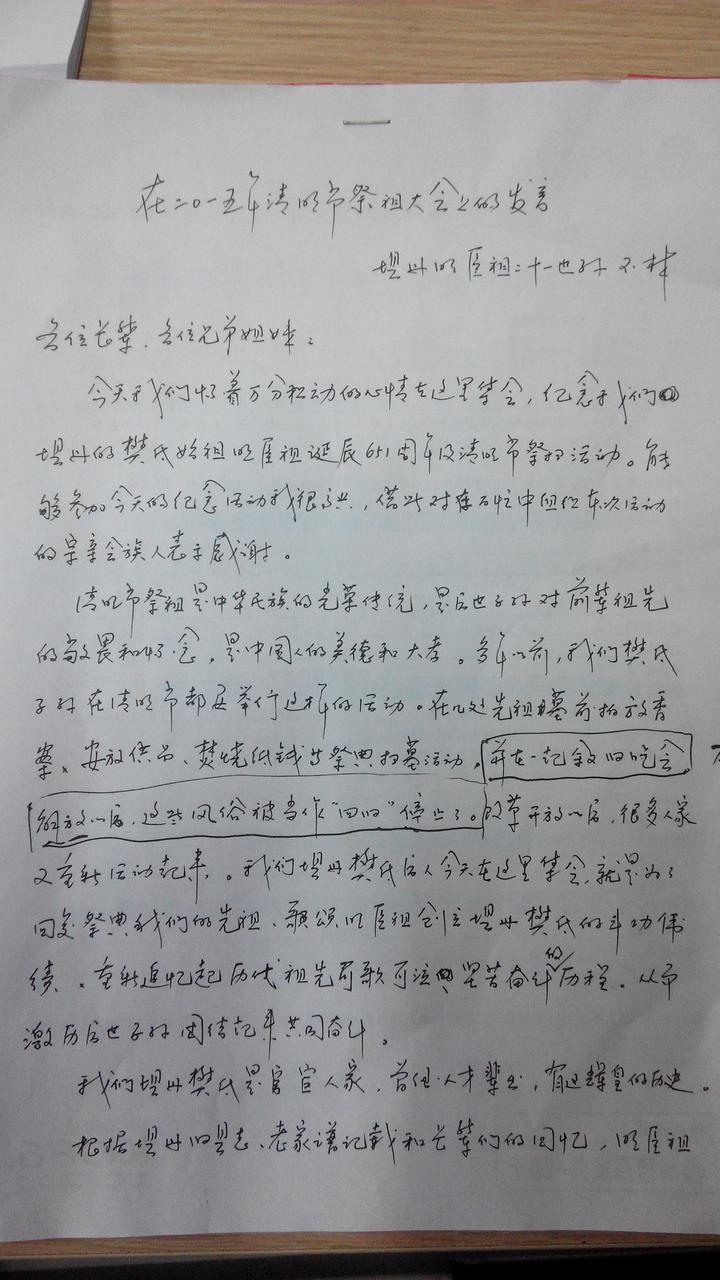 在二〇一五年清明节祭祖大会上的发言
坦山明臣祖二十一世孙 不材
各位长辈、各位兄弟姐妹：
今天我们怀着万分激动的心情在这里集会，纪念我们
坦山的樊氏始祖明臣祖诞辰651周年及清明节祭扫活动。能
够参加今天的纪念活动我很高兴，借此对在百忙中组织本次活动
的宗亲会族人表示感谢。
清明节祭祖是中华民族的光荣传统，是后世子孙对前辈祖先
的敬畏和怀念，是中国人的美德和大孝。多年以前，我们樊氏
子孙在清明节都要举行这样的活动。在几处先祖墓前拍放香
案、安放供品、焚烧纸钱等祭典扫墓活动，并在一起叙旧吃会
解放以后，这些风俗被当作“四旧”停止了。改革开放以后，很多人家
又重新活动起来。我们坦山樊氏后人今天在这里集会，就是为了
回复祭典我们的先祖、歌颂明臣祖创立坦山樊氏的丰功伟
绩、重新追忆起历代祖先可歌可泣的坚苦奋斗的历程。从而
激历后世子孙团结起来共同奋斗。
我们坦山樊氏是官宦人家，曾经人才辈出，有过辉皇的历史。
根据坦山旧县志、老家谱记载和长辈们的回忆，明臣祖